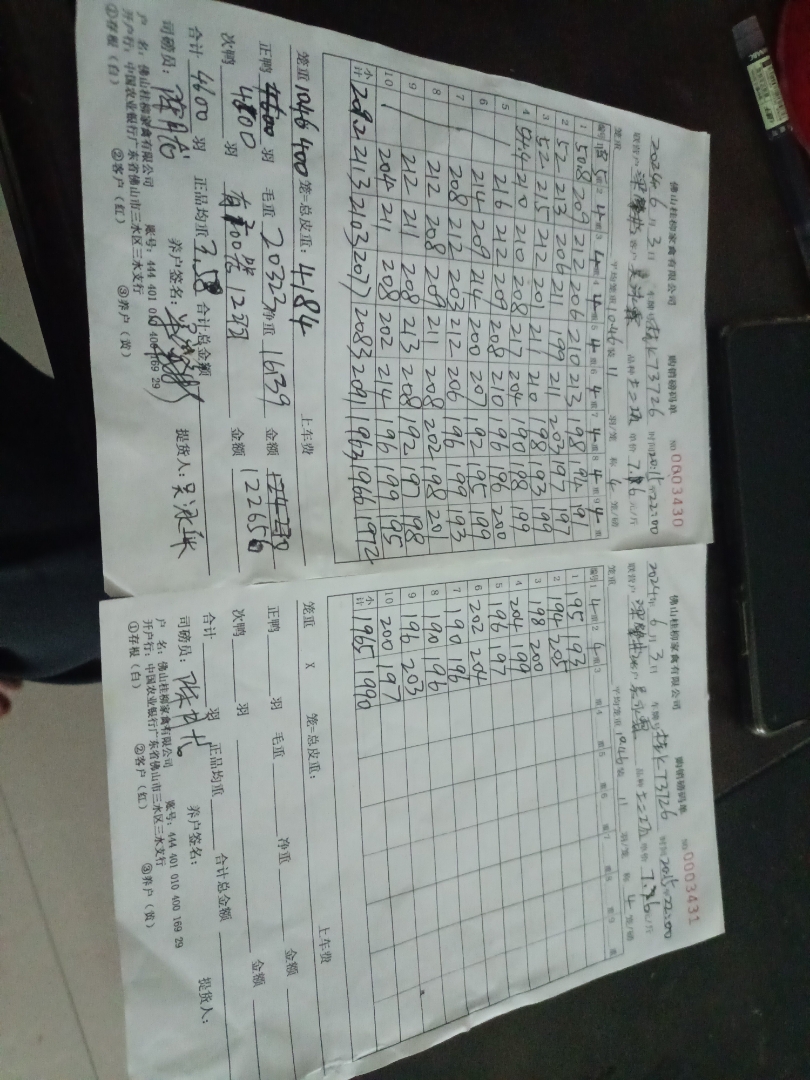 佛山桂柳家禽有限公司 购销磅码单 NO 0003430
2024年6月3日 车牌号 桂K T3726 时间20:15至22:00
联营户 客户 品种 土二改 单价 7.36元/斤
笼重 平均笼重1046 装 11 羽/笼 称 4 笼/磅
编号 组2 4 组3 4 组4 4 组5 4 组6 4 组7 4 组8 4 组9 4 组
1 508 209 212 206 210 213 198 194 191
2 52 213 206 211 199 211 203 197 197
3 52 215 212 201 211 210 198 193 199
4 94.4 210 210 208 217 204 190 198 199
5 216 212 209 208 210 196 196 200
6 214 209 214 200 207 192 195 199
7 208 212 203 212 206 196 199 193
8 212 208 209 211 208 202 198 201
9 212 211 208 213 208 192 197 198
10 204 211 208 202 214 196 199 195
小计 2092 2113 2103 2077 2083 2091 1963 1966 1972
笼重1046 400 笼=总皮重:4184 上车费
正鸭 4600 羽 毛重 20323 净重 1639 金额
次鸭 4800 羽 有 笼 12羽 金额 122656
合计 4600 羽 正品均重 3.58 合计总金额
司磅员: 养户签名: 提货人:
户 名:佛山桂柳家禽有限公司 账号:444 401 010 400 169 29
开户行:中国农业银行广东省佛山市三水区三水支行
①存根(白) ②客户(红) ③养户(黄)
佛山桂柳家禽有限公司 购销磅码单 NO 0003431
2024年6月3日 车牌号 桂K T3726 时间20:15至22:00
联营户 客户 品种 土二改 单价 7.36元/斤
笼重 平均笼重1046 装 11 羽/笼 称 4 笼/磅
编号 4 组2 4 组3 组4 组5 组6 组7 组8 组9 组
1 195 193
2 194 205
3 198 200
4 204 199
5 196 197
6 202 204
7 190 196
8 190 196
9 196 203
10 200 197
小计 1965 1990
笼重 x 笼=总皮重: 上车费
正鸭 羽 毛重 净重 金额
次鸭 羽 金额
合计 羽 正品均重 合计总金额
司磅员: 养户签名: 提货人:
户 名:佛山桂柳家禽有限公司 账号:444 401 010 400 169 29
开户行:中国农业银行广东省佛山市三水区三水支行
①存根(白) ②客户(红) ③养户(黄)